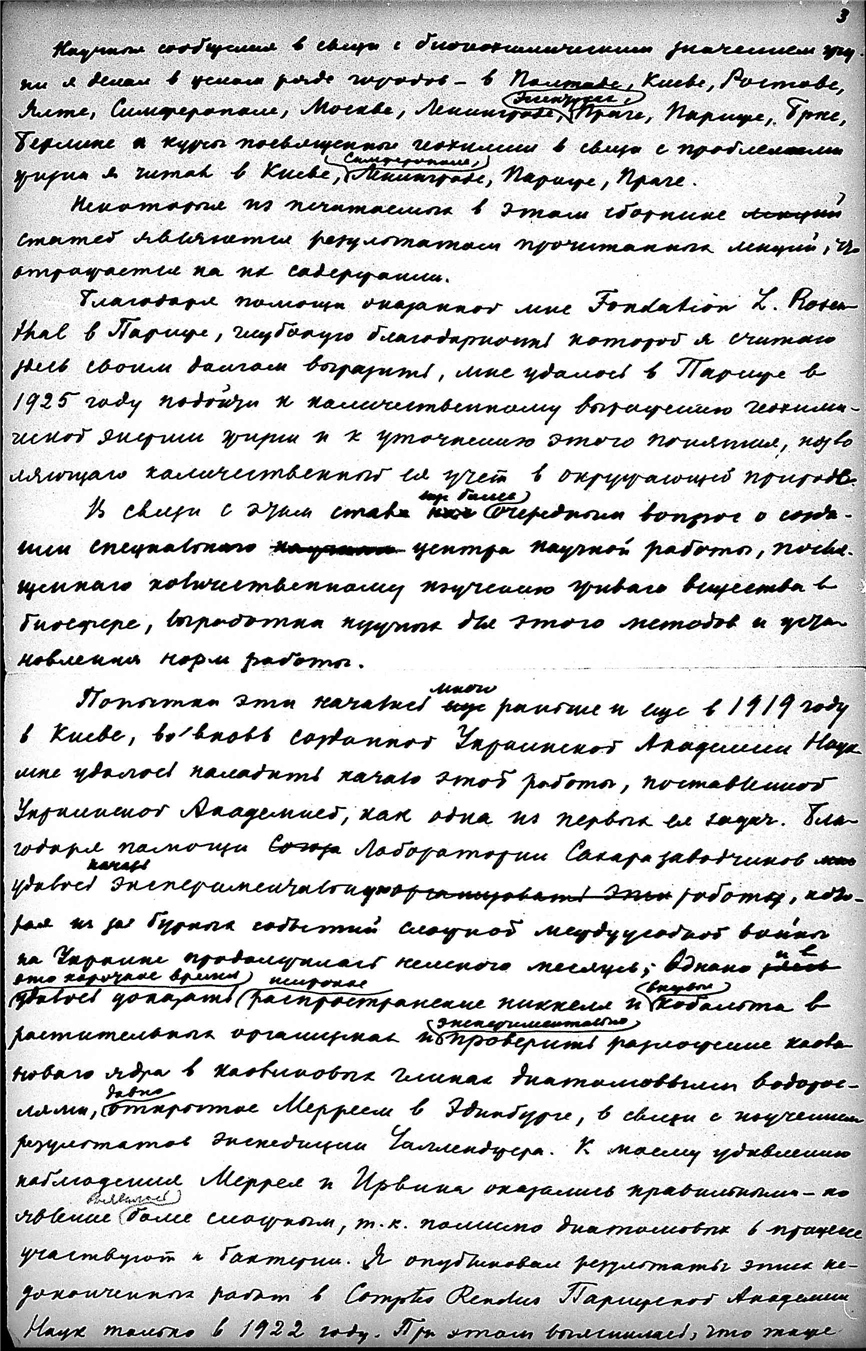 3
Научныя сообщения в связи с биогеохимическим значением жиз-
ни я делал в целом ряде городов – в Полтаве, Киеве, Ростове,
Эдинбурге,
Ялте, Симферополе, Москве, Ленинграде, Праге, Париже, Брне,
Берлине и курсы посвященные геохимии в связи с проблемами
Симферополе,
жизни я читал в Киеве, Ленинграде, Париже, Праге.
Некоторые из печатаемых в этом сборнике лекций
статей являются результатом прочитанных лекций, что
отражается на их содержании.
Благодаря помощи оказанной мне Fondation L. Rosen-
thal в Париже, глубокую благодарность которой я считаю
здесь своим долгом выразить, мне удалось в Париже в
1925 году подойти к количественному выражению геохими-
ческой энергии жизни и к уточнению этого понятия, позво
ляющаго количественный ея учет в окружающей природе.
еще более
В связи с этим стал очередным вопрос о созда-
нии специального центра научной работы, посвя-
щеннаго количественному изучению живаго вещества в
биосфере, выработки нужных для этого методов и уста-
новления норм работы.
мною
Попытки эти начались еще раньше и еще в 1919 году
в Киеве, во вновь созданной Украинской Академии Наук
мне удалось наладить начало этой работы, поставленной
Украинской Академией, как одна из первых ея задач. Бла-
годаря помощи Союза Лаборатории Сахарозаводчиков мне
начать
удалось экспериментальную организовать эти работы, кото-
рая из за бурных событий сложной междуусобной войны
на Украине продолжилась немного месяцев; Однако здесь
и в
это короткое время широкое впервые
удалось доказать распространение никкеля и кобальта в
экспериментально
растительных организмах и проверить разложение каоли-
новаго ядра в каолиновых глинах диатомовыми водорос-
давно
лями, открытое Мерреем в Эдинбурге, в связи с изучением
результатов экспедиции Чалленджера. К моему удивлению
наблюдения Меррея и Ирвина оказались правильными – но
явление более сложным, т.к. помимо диатомовых в процессе
участвуют и бактерии. Я опубликовал результаты этих не-
доконченных работ в Comptes Rendus Парижской Академии
Наук только в 1922 году. При этом выяснилось, что также